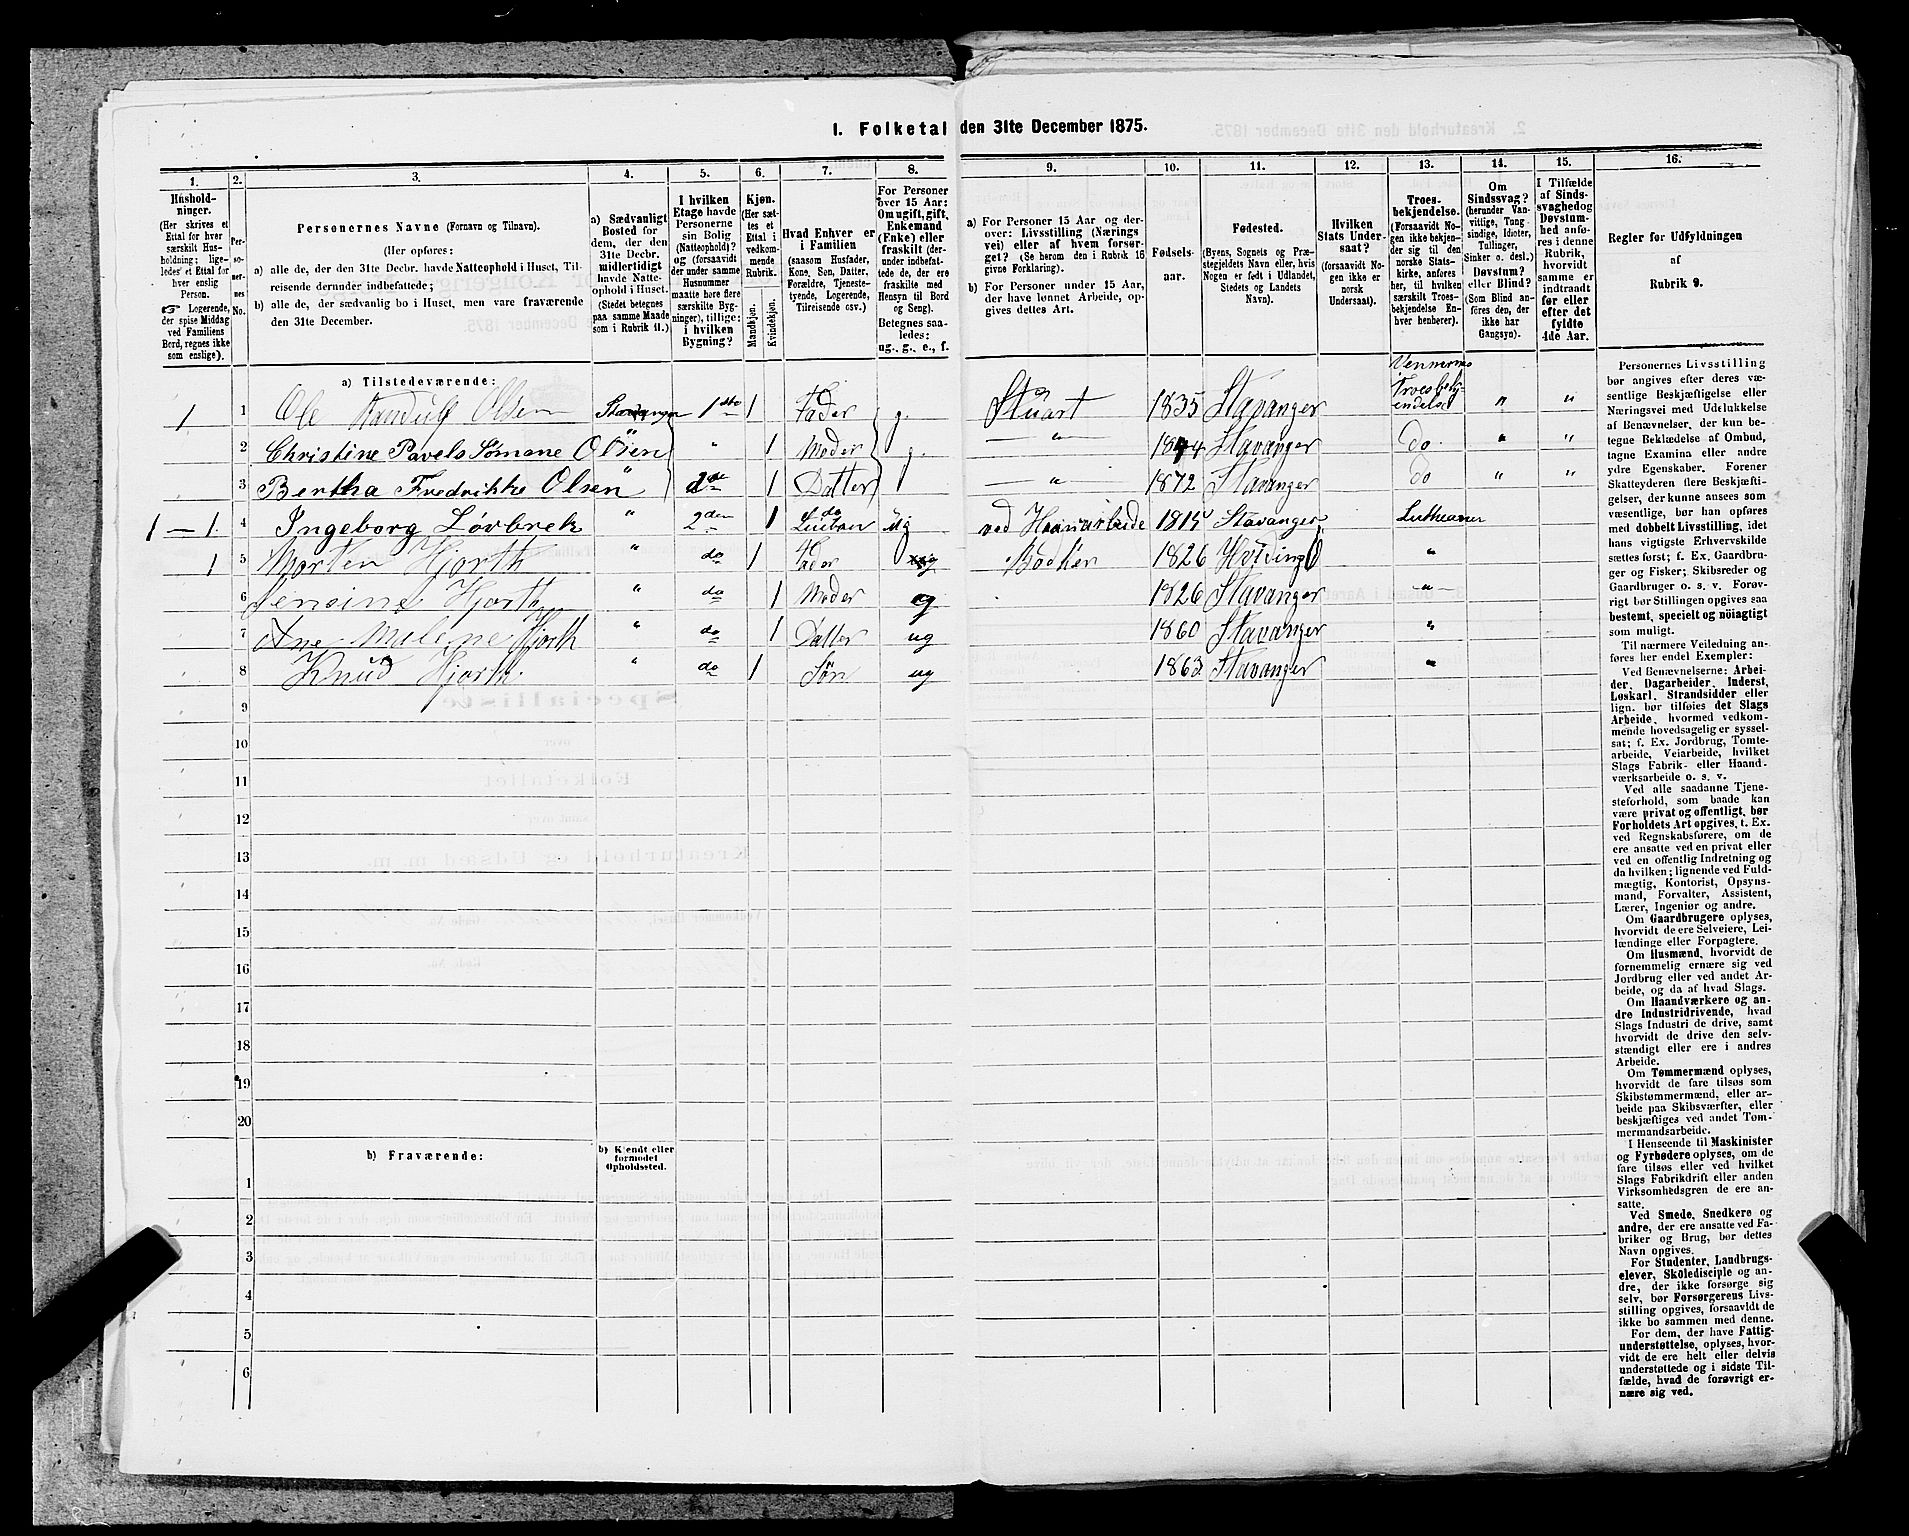 1. Folketal den 31te December 1875.
1. 2. 3. 4. 5. 6. 7. 8. 9. 10. 11. 12. 13. 14. 15. 16.
Husholdninger.
(Her skrives et
Ettal for hver
særskilt Husholdning;
ligeledes' et Ettal for
hver enslig
Person.
☞ Logerende,
der spise Middag
ved Familiens
Bord, regnes ikke
som enslige).
Personernes No.
Personernes Navne (Fornavn og Tilnavn).
(Her opføres:
a) alle de, der den 31te Decbr. havde Natteophold i Huset, Tilreisende derunder indbefattede;
b) alle de, der sædvanlig bo i Huset, men vare fraværende
den 31te December.
a) Sædvanligt
Bosted for
dem, der den
31te Decbr.
midlertidigt
havde Natteophold i Huset.
(Stedet betegnes
paa samme Maade
som i Rubrik 11.)
I hvilken
Etage havde
Personerne
sin Bolig
(Natteophold)?
og (forsaavidt
der under samme
Husnummer
maatte høre flere
særskilte Bygninger), tillige:
i hvilken
Bygning?
Kjøn.
(Her sættes et
Ettal i
vedkommende
Rubrik.
Mandkjøn.
Kvindekjøn.
Hvad Enhver er
i Familien
(saasom Husfader,
Kone, Søn, Datter,
Forældre, Tjenestetyende, Logerende,
Tilreisende osv.)
For Personer
over 15 Aar:
Om ugift, gift,
Enkemand
(Enke) eller
fraskilt (derunder
indbefattede de, ere
fraskilte med
Hensyn til Bord
og Seng).
Betegnes saaledes:
ug., g., e., f.
a) For Personer 15 Aar og derover: Livsstilling (Næringsvei) eller af hvem forsørget? (Se herom den i Rubrik 16
givne Forklaring).
b) For Personer under 15 Aar,
der have lønnet Arbeide, opgives dettes Art.
Fødselsaar.
Fødested.
(Byens, Sognets og Præstegjeldets Navn eller, hvis
Nogen er født i Udlandet,
Stedets og Landets
Navn).
Hvilken
Stats Undersaat?
(forsaavidt Nogen ikke er
norsk
Undersaat).
Troesbekjendelse.
(Forsaavidt Nogen ikke bekjender sig til den
norske Statskirke, anføres
her, til hvilken
særskilt Troesbekjendelse Enhver henhører).
Om
Sindssvag?
(herunder Vanvittige, Tungsindige, Idioter,
Tullinger,
Sinker o. desl.)
Døvstum?
eller Blind?
(Som Blind anføres den, der
ikke har
Gangsyn).
I Tilfælde
af Sindssvaghed og
Døvstumhed anføres i denne
Rubrik,
hvorvidt
samme er
indtraadt
før eller
efter det
fyldte
4de Aar.
Regler for Udfyldningen
af
Rubrik 9.
a) Tilstedeværende:
1 1 Ole Randulf Olsen Stavanger 1ste 1 Fader g. Stuart 1835 Stavanger Vennernes Troesbekjendelse " "
2 Christine Pavels Sømone Olsen " " 1 Moder g. " 1844 Stavanger do " "
3 Bertha Fredrikke Olsen " 2de 1 Datter " 1872 Stavanger do " "
1 — 1 4 Ingeborg Løvbrek " 2den 1 ug ved Haanarbeide 1815 Stavanger Lutheaner
1 5 Morten Hjorth " do 1 Fader Bødker 1826 Hvidingö "
6 Jensine Hjorth " do 1 Moder g 1826 Stavanger "
7 Ane Malene Hjorth " do 1 Datter ug 1860 Stavanger "
8 Knud Hjorth. " do 1 Søn ug 1863 Stavanger "
9
10
11
12
13
14
15
16
17
18
19
20
b) Fraværende:
b) Kjendt eller
formodet
Opholdssted.
1
2
3
4
5
6
Personernes Livsstilling
bør angives efter deres væsentlige Beskjæftigelse eller
Næringsvei med Udelukkelse
af Benævnelser, der kun betegne Beklædelse af Ombud,
tagne Examina eller andre
ydre Egenskaber. Forener
Skatteyderen flere Beskjæftigelser, der kunne ansees som
væsentlige, bør han opføres
med dobbelt Livsstilling, idet
hans vigtigste Erhvervskilde
sættes først; f. Ex. Gaardbruger og Fisker; Skibsreder og
Gaardbruger o. s. v. Forøvrigt bør Stillingen opgives saa
bestemt, specielt og nöiagtigt
som muligt.
Til nærmere Veiledning anføres her endel Exempler:
Ved Benævnelserne: Arbeider, Dagarbeider, Inderst,
Løskarl, Strandsidder eller
lign. bør tilføies det Slags
Arbeide, hvormed vedkommende hovedsagelig er sysselsat; f. Ex. Jordbrug, Tomtearbeide, Veiarbeide, hvilket
Slags Fabrik- eller Haandværksarbeide o. s. v.
Ved alle saadanne Tjenesteforhold, som baade kan
være privat og offentligt, bør
Forholdets Art opgives, t. Ex.
ved Regnskabsførere, om de
ere ansatte ved en privat eller
ved en offentlig Indretning og
da hvilken; lignende ved Fuldmægtig, Kontorist, Opsynsmand, Forvalter, Assistent,
Lærer, Ingeniør og andre.
Om Gaardbrugere oplyses,
hvorvidt de ere Selveiere, Leilændinge eller Forpagtere.
Om Husmænd, hvorvidt de
fornemmelig ernære sig ved
Jordbrug eller ved andet Arbeide, og da af hvad Slags.
Om Haandværkere og andre Industridrivende, hvad
Slags Industri de drive, samt
hvorvidt de drive den selvstændigt eller ere i andres
Arbeide.
Om Tømmermænd oplyses,
hvorvidt de fare tilsøs som
Skibstømmermænd, eller arbeide paa Skibsværfter, eller
beskjæftiges ved andet Tømmermandsarbeide.
I Henseende til Maskinister
og Fyrbødere oplyses, om de
fare tilsøs eller ved hvilket
Slags Fabrikdrift eller anden
Virksomhedsgren de ere ansatte.
Ved Smede, Snedkere og
andre, der ere ansatte ved Fabriker og Brug, bør dettes
Navn opgives.
For Studenter, Landbrugselever, Skoledisciple og andre, der ikke forsørge sig
selv, bør Forsørgerens Livsstilling opgives, forsaavidt de
ikke bo sammen med denne.
For dem, der have Fattigunderstøttelse, oplyses, hvorvidt de ere helt eller delvis
understøttede og i sidste Tilfælde, hvad de forøvrigt ernære sig ved.